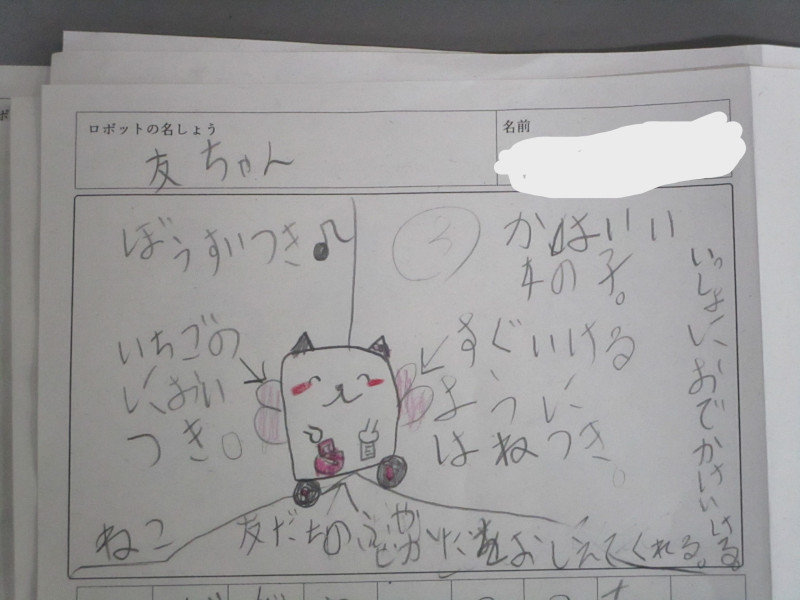 ロボットの名しょう
友ちゃん
名前
ぼうすいつき♪
③
かはいい
女の子。
いっしょに、おでかけいける。
いちごの
においつき。
すぐいける
ように
はねつき。
ねこ
おしえてくれる。